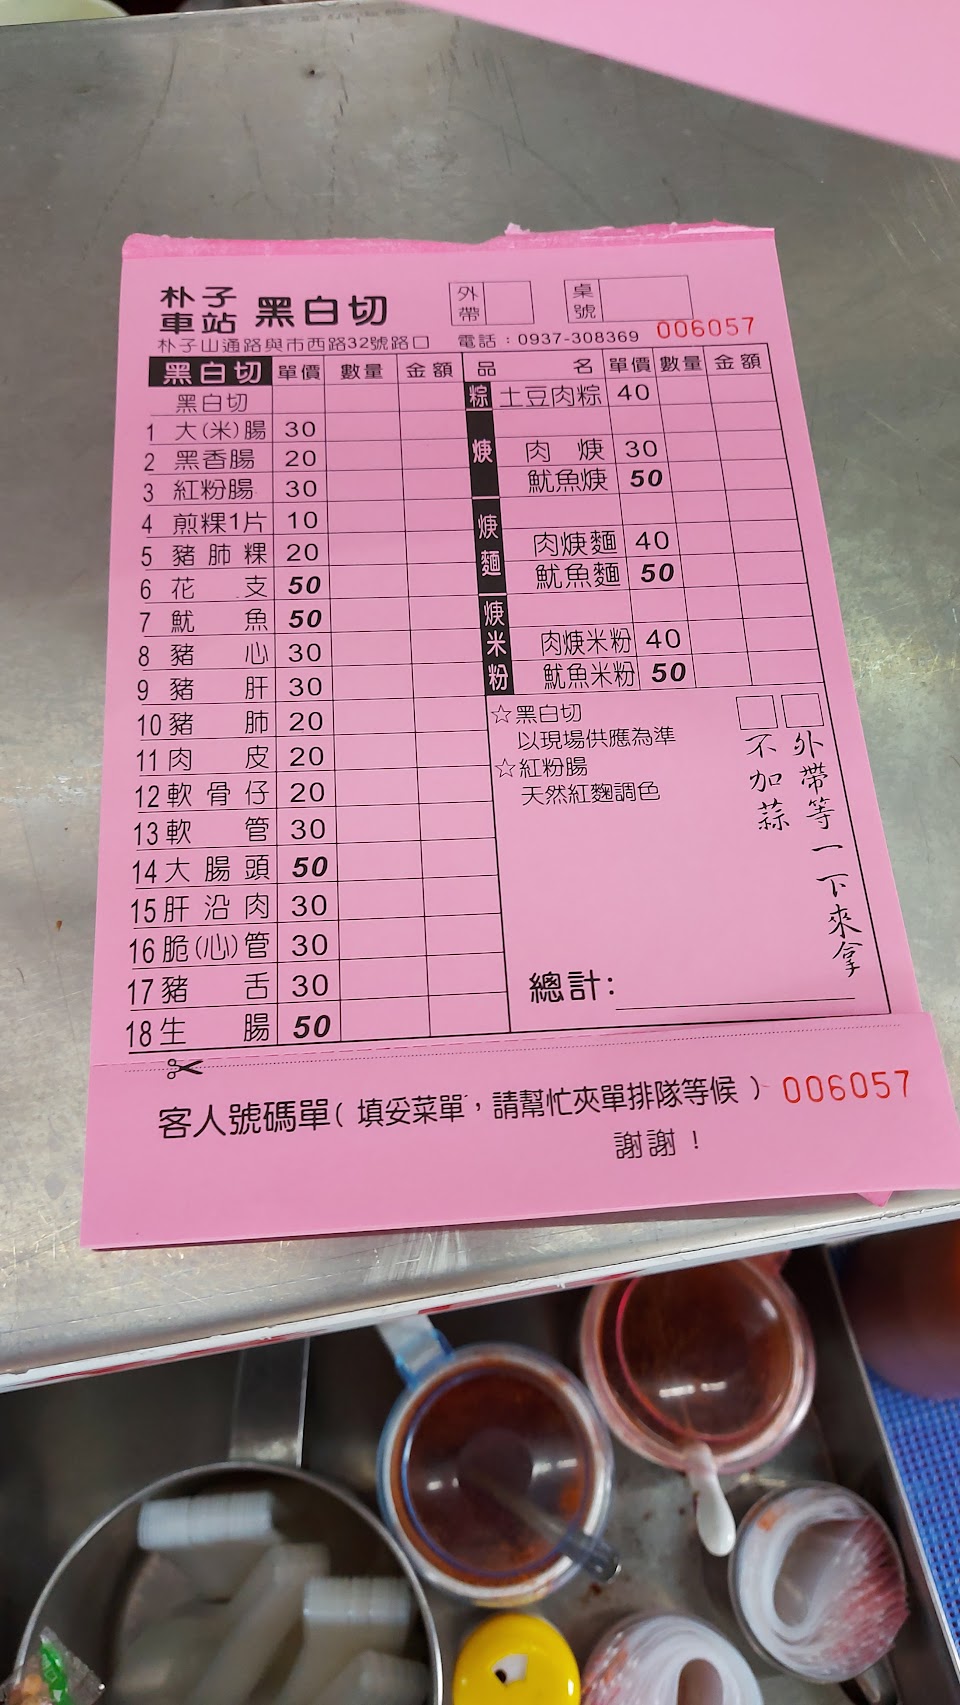 朴子車站 黑白切
外帶
桌號
朴子山通路與市西路32號路口 電話：0937-308369 006057
黑白切 單價 數量 金額
黑白切
1 大(米)腸 30
2 黑香腸 20
3 紅粉腸 30
4 煎粿1片 10
5 豬肺粿 20
6 花支 50
7 魷魚 50
8 豬心 30
9 豬肝 30
10 豬肺 20
11 肉皮 20
12 軟骨仔 20
13 軟管 30
14 大腸頭 50
15 肝沿肉 30
16 脆(心)管 30
17 豬舌 30
18 生腸 50
品名 單價 數量 金額
粽 土豆肉粽 40
焿
肉焿 30
魷魚焿 50
焿麵
肉焿麵 40
魷魚麵 50
焿米粉
肉焿米粉 40
魷魚米粉 50
☆黑白切
以現場供應為準
☆紅粉腸
天然紅麴調色
外帶等一下來拿
不加蒜
總計：
客人號碼單（填妥菜單，請幫忙夾單排隊等候）006057
謝謝！